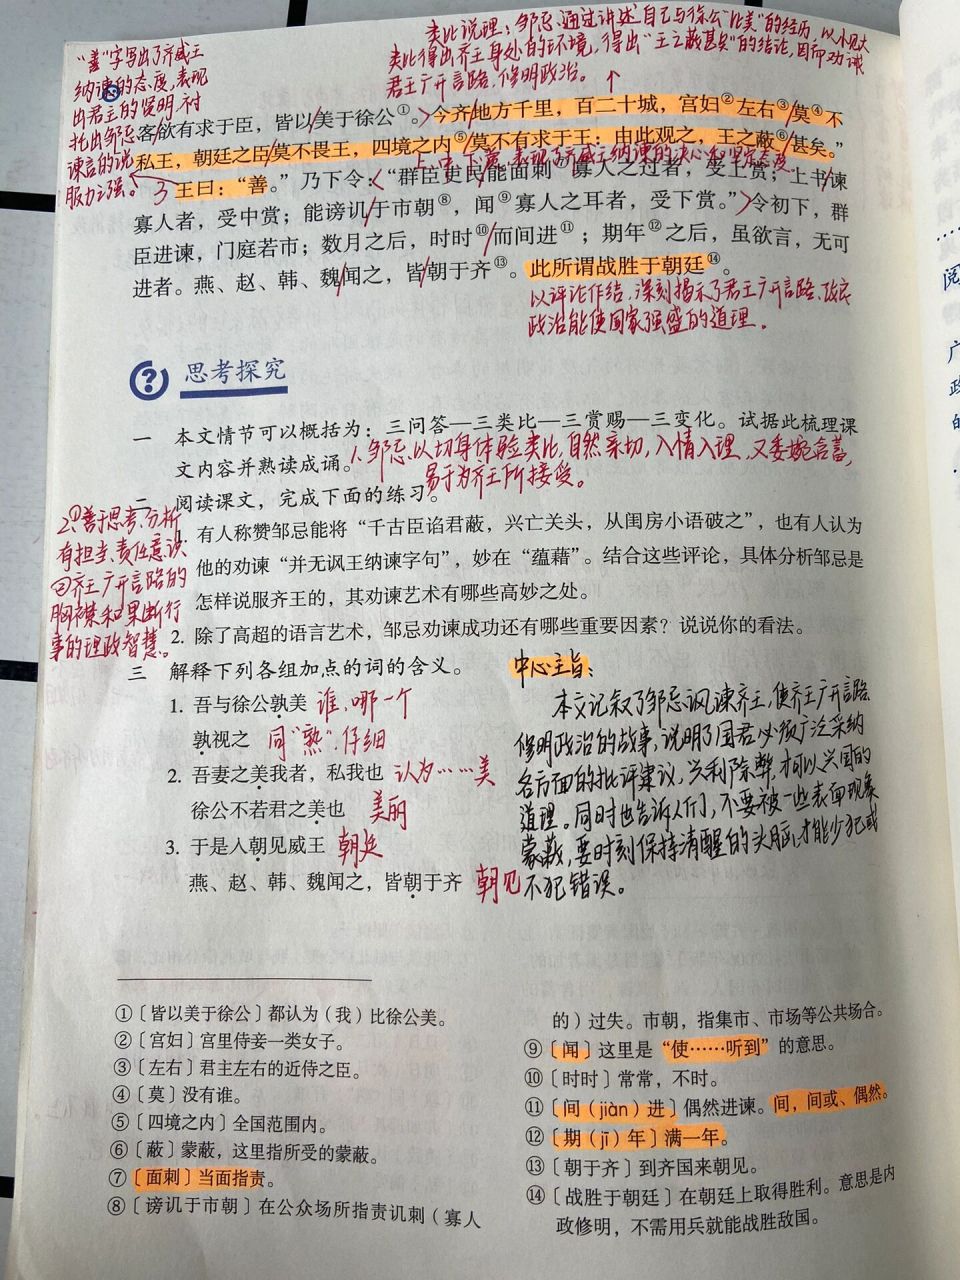 类比说理：邹忌通过讲述自己与徐公“比美”的经历，以小见大
类比得出齐王身处的环境，得出“王之蔽甚矣”的结论，因而劝谏
君王广开言路，修明政治。
“善”字写出了齐威王
纳谏的态度，表现
出君主的贤明，衬
托出邹忌
谏言的说
服力之强。
客欲有求于臣，皆以美于徐公①。今齐地方千里，百二十城，宫妇②左右③莫④不
私王，朝廷之臣莫不畏王，四境之内⑤莫不有求于王：由此观之，王之蔽⑥甚矣。”
上、中、下赏，表现了齐威王纳谏的决心和坚定态度
3
王曰：“善。”乃下令：“群臣吏民能面刺⑦寡人之过者，受上赏；上书谏
寡人者，受中赏；能谤讥于市朝⑧，闻⑨寡人之耳者，受下赏。”令初下，群
臣进谏，门庭若市；数月之后，时时⑩而间进⑪；期年⑫之后，虽欲言，无可
进者。燕、赵、韩、魏闻之，皆朝于齐⑬。此所谓战胜于朝廷⑭。
以评论作结，深刻揭示了君王广开言路、改良
政治能使国家强盛的道理。
思考探究
一 本文情节可以概括为：三问答—三类比—三赏赐—三变化。试据此梳理课
文内容并熟读成诵。
1、邹忌以切身体验类比，自然亲切，入情入理，又委婉含蓄，
易于为齐王所接受。
二 阅读课文，完成下面的练习。
1. 有人称赞邹忌能将“千古臣谄君蔽，兴亡关头，从闺房小语破之”，也有人认为
他的劝谏“并无讽王纳谏字句”，妙在“蕴藉”。结合这些评论，具体分析邹忌是
怎样说服齐王的，其劝谏艺术有哪些高妙之处。
2. 除了高超的语言艺术，邹忌劝谏成功还有哪些重要因素？说说你的看法。
2①善于思考、分析
有担当、责任意识
②齐王广开言路的
胸襟和果断行
事的理政智慧。
三 解释下列各组加点的词的含义。
1. 吾与徐公孰美 谁，哪一个
孰视之 同“熟”，仔细
2. 吾妻之美我者，私我也 认为……美
徐公不若君之美也 美丽
3. 于是入朝见威王 朝廷
燕、赵、韩、魏闻之，皆朝于齐 朝见
中心主旨：
本文记叙了邹忌讽谏齐王，使齐王广开言路、
修明政治的故事，说明了国君必须广泛采纳
各方面的批评建议，兴利除弊，才可以兴国的
道理。同时也告诉人们，不要被一些表面现象
蒙蔽，要时刻保持清醒的头脑，才能少犯或
不犯错误。
①〔皆以美于徐公〕都认为（我）比徐公美。
②〔宫妇〕宫里侍妾一类女子。
③〔左右〕君主左右的近侍之臣。
④〔莫〕没有谁。
⑤〔四境之内〕全国范围内。
⑥〔蔽〕蒙蔽，这里指所受的蒙蔽。
⑦〔面刺〕当面指责。
⑧〔谤讥于市朝〕在公众场所指责讥刺（寡人
的）过失。市朝，指集市、市场等公共场合。
⑨〔闻〕这里是“使……听到”的意思。
⑩〔时时〕常常，不时。
⑪〔间（jiàn）进〕偶然进谏。间，间或、偶然。
⑫〔期（jī）年〕满一年。
⑬〔朝于齐〕到齐国来朝见。
⑭〔战胜于朝廷〕在朝廷上取得胜利。意思是内
政修明，不需用兵就能战胜敌国。
阅
广
政
的